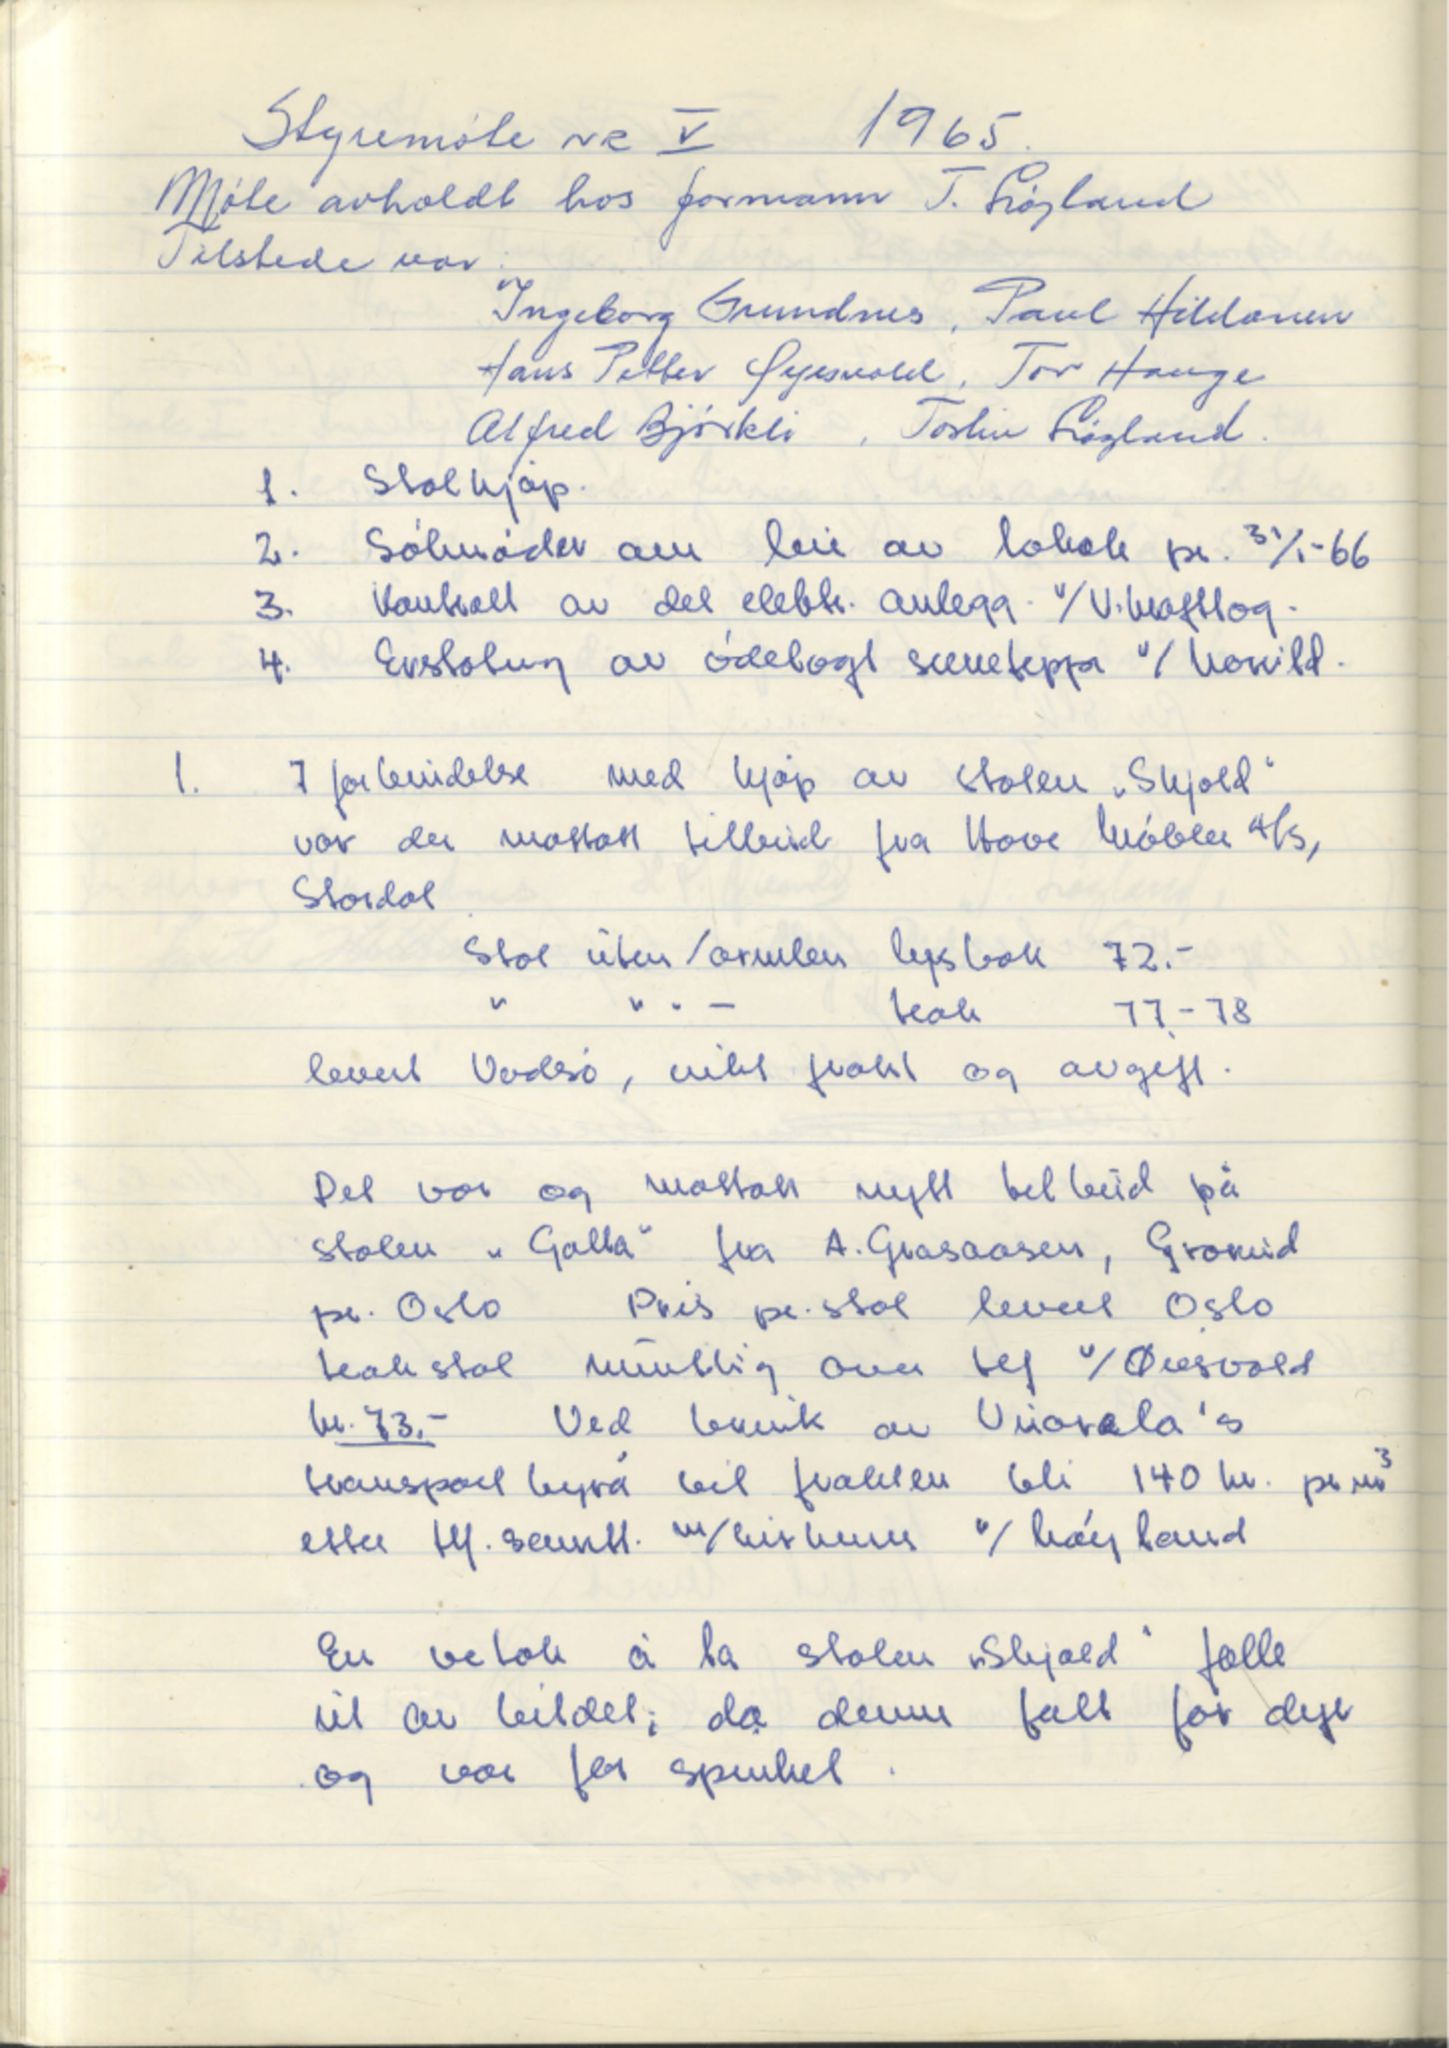 Styremöte nr V 1965.
Möte avholdt hos formann T. Lögland
Tilstede var:
Ingeborg Grundnes, Paul Hildonen
Hans Petter Øyesvold, Tor Hauge
Alfred Björkli, Lögland.
1. Stolkjöp.
2. Sölmöder om leie av lokale pr. 31/1-66
3. Kontroll av det elektr. anlegg v/V.kraftlag.
4. Erstatning av ödelagt sceneteppe v/
1. I forbindelse med kjöp av stolen "Skjold"
var der mottatt tilbud fra Hove Möbler A/S,
Stordal
Stol uten/armlen lysbok 72.-
" " " - teak 77.-78
levert Vadsö, inkl frakt og avgift.
Det var og mottatt nytt tilbud på
stolen "Galla" fra A. Grasaasen, Grorud
pr. Oslo Pris pr. stol levert Oslo
teak stol muntlig over tlf v/Øiesvold
kr. 73.- Ved bruk av
transportbyrå vil frakten bli 140 kr. pr m³
etter tlf. samt. m/ v/Lögland
En vetok å la stolen "Skjold" falle
ut av bildet; da denne falt for dyr
og var for spinkel.